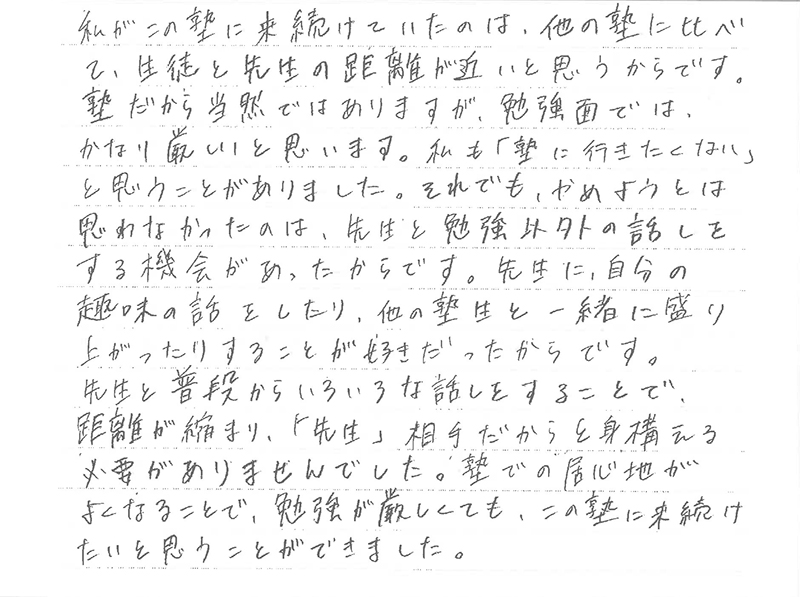 私がこの塾に来続けていたのは、他の塾に比べ
て、生徒と先生の距離が近いと思うからです。
塾だから当然ではありますが、勉強面では、
かなり厳しいと思います。私も「塾に行きたくない」
と思うことがありました。それでも、やめようとは
思わなかったのは、先生と勉強以外の話しを
する機会があったからです。先生に、自分の
趣味の話をしたり、他の塾生と一緒に盛り
上がったりすることが好きだったからです。
先生と普段からいろいろな話しをすることで、
距離が縮まり、「先生」相手だからと身構える
必要がありませんでした。塾での居心地が
よくなることで、勉強が厳しくても、この塾に来続け
たいと思うことができました。